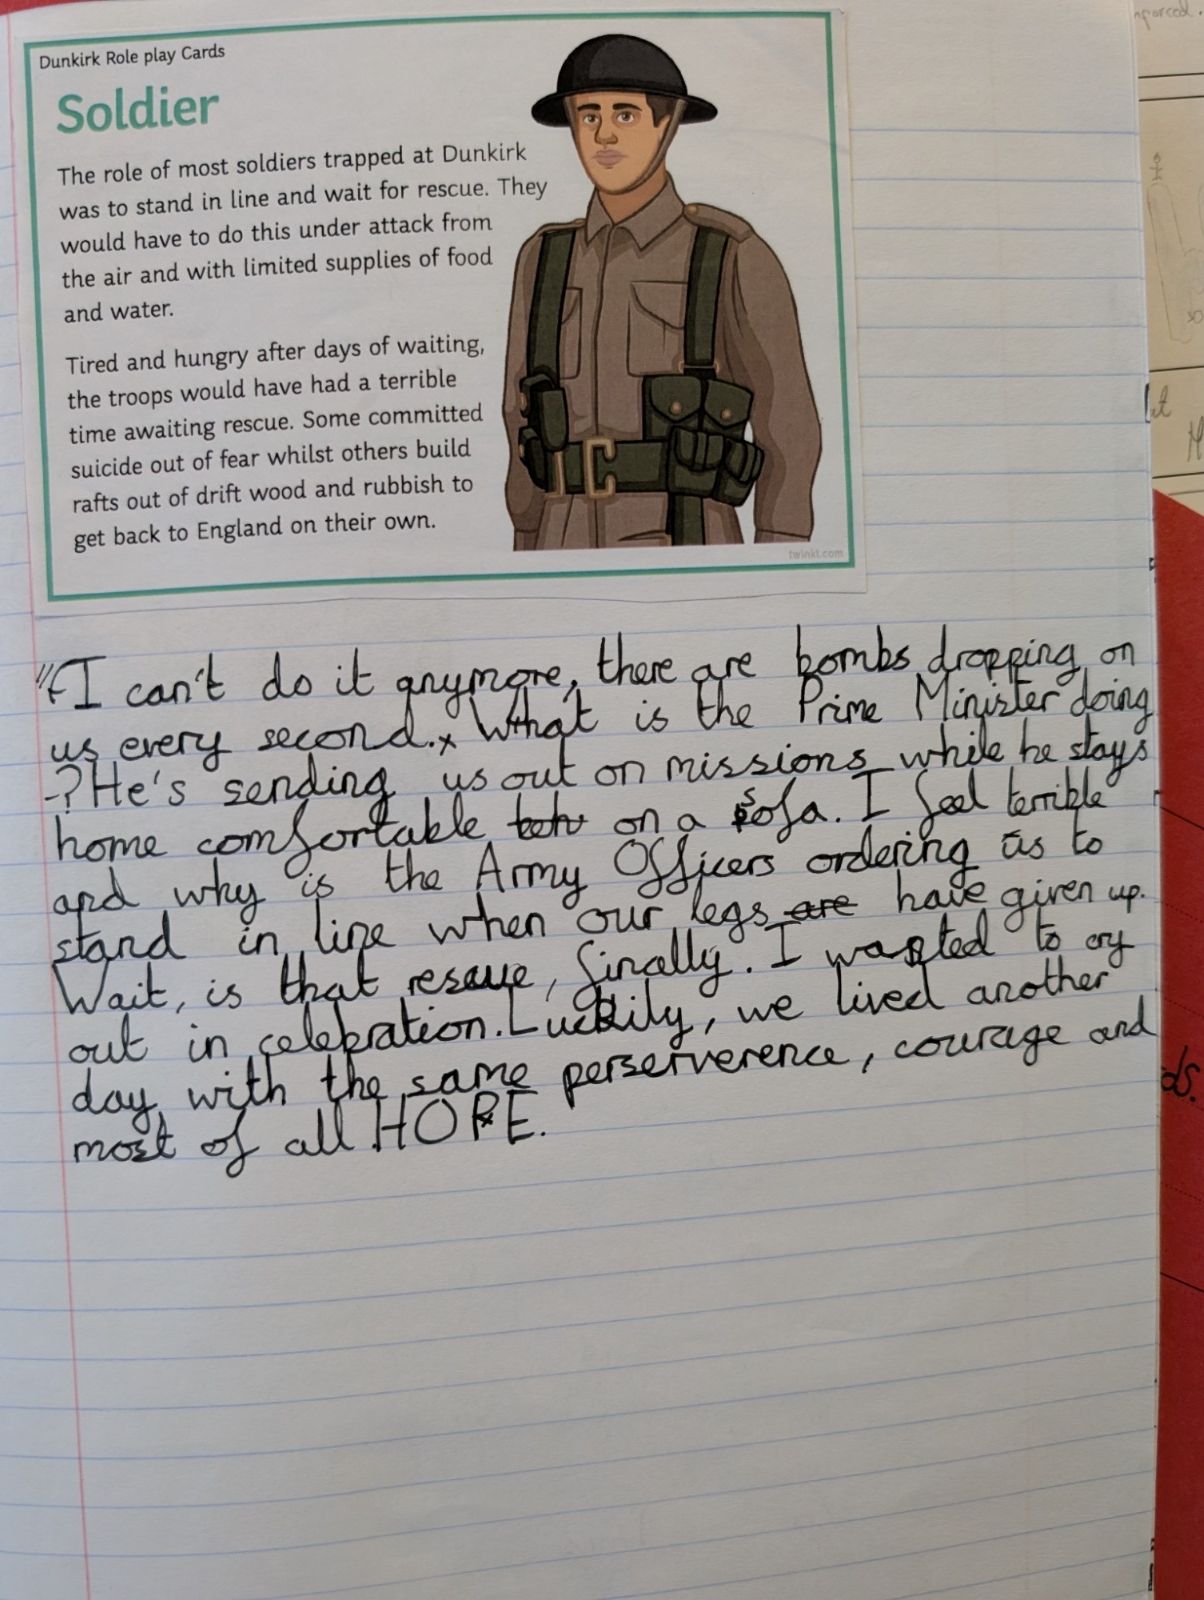 Dunkirk Role play Cards
Soldier
The role of most soldiers trapped at Dunkirk
was to stand in line and wait for rescue. They
would have to do this under attack from
the air and with limited supplies of food
and water.
Tired and hungry after days of waiting,
the troops would have had a terrible
time awaiting rescue. Some committed
suicide out of fear whilst others build
rafts out of drift wood and rubbish to
get back to England on their own.
twinkl.com
"I can't do it anymore, there are bombs dropping on
us every second. What is the Prime Minister doing
? He's sending us out on missions while he stays
home comfortable on a sofa. I feel terrible
and why is the Army Officers ordering us to
stand in line when our legs are have given up.
Wait, is that rescue, finally. I wanted to cry
out in celebration. Luckily, we lived another
day with the same perserverence, courage and
most of all HOPE.
ds.